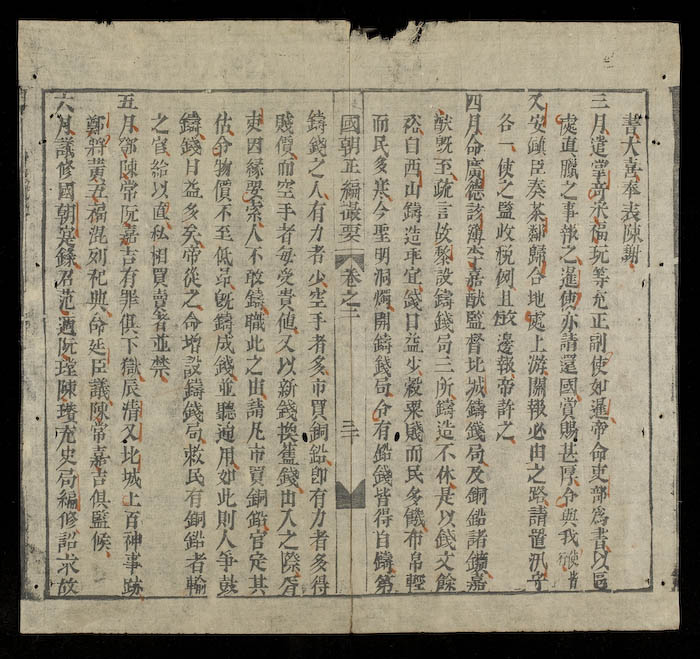 書大喜奉表陳謝
三月遣掌奇宋福玩等充正副使如暹帝命吏部為書以區
處直臘之事報之暹使亦請還國賞賜甚厚令與我使偕
又安鎮臣奏茶鄰歸合地處上游關報必由之路請置汛守
各一使之監收稅例且放邊報帝許之
四月命廣德該簿李嘉猷監督北城鑄錢局及銅鉛諸鑛嘉
猷既至疏言故黎設鑄錢局三所鑄造不休是以錢文餘
祫自西山鑄造乖宜錢日益少穀粟賤而民多饑布帛輕
而民多寒今聖明洞燭開鑄錢局令有鉛錢皆得自鑄第
國朝正編撮要 卷之二 三十
鑄錢之人有力者少空手者多市買銅鉛卽有力者多得
賤價而空手者每受貴値又以新錢換舊錢由入之際胥
吏因緣要索人不敢鑄職此之由請凡市買銅鉛官定其
估令物價不至低昻旣鑄成錢並聽通用如此則人爭鼓
鑄錢日益多矣帝從之命增設鑄錢局敕民有銅鉛者輸
之官給以直私相買賣者並禁
五月鄧陳常阮嘉吉有罪俱下獄辰清又北城上百神事跡
鄭將黃五福混列祀典命廷臣議陳常嘉吉俱監候
六月議修國朝寔錄召范適阮瑝陳瓚充史局編修詔求故